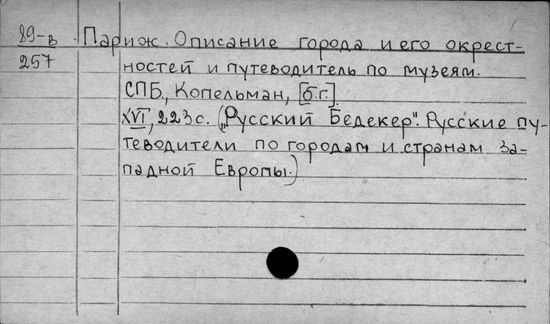 89-в Париж. Описание города и его окрест-
257 ностей и путеводитель по музеям.
СПБ., Копельман, [б.г.].
XVI, 223 с. („Русский Бедекер". Русские пу-
теводители по городам и странам За-
падной Европы.)